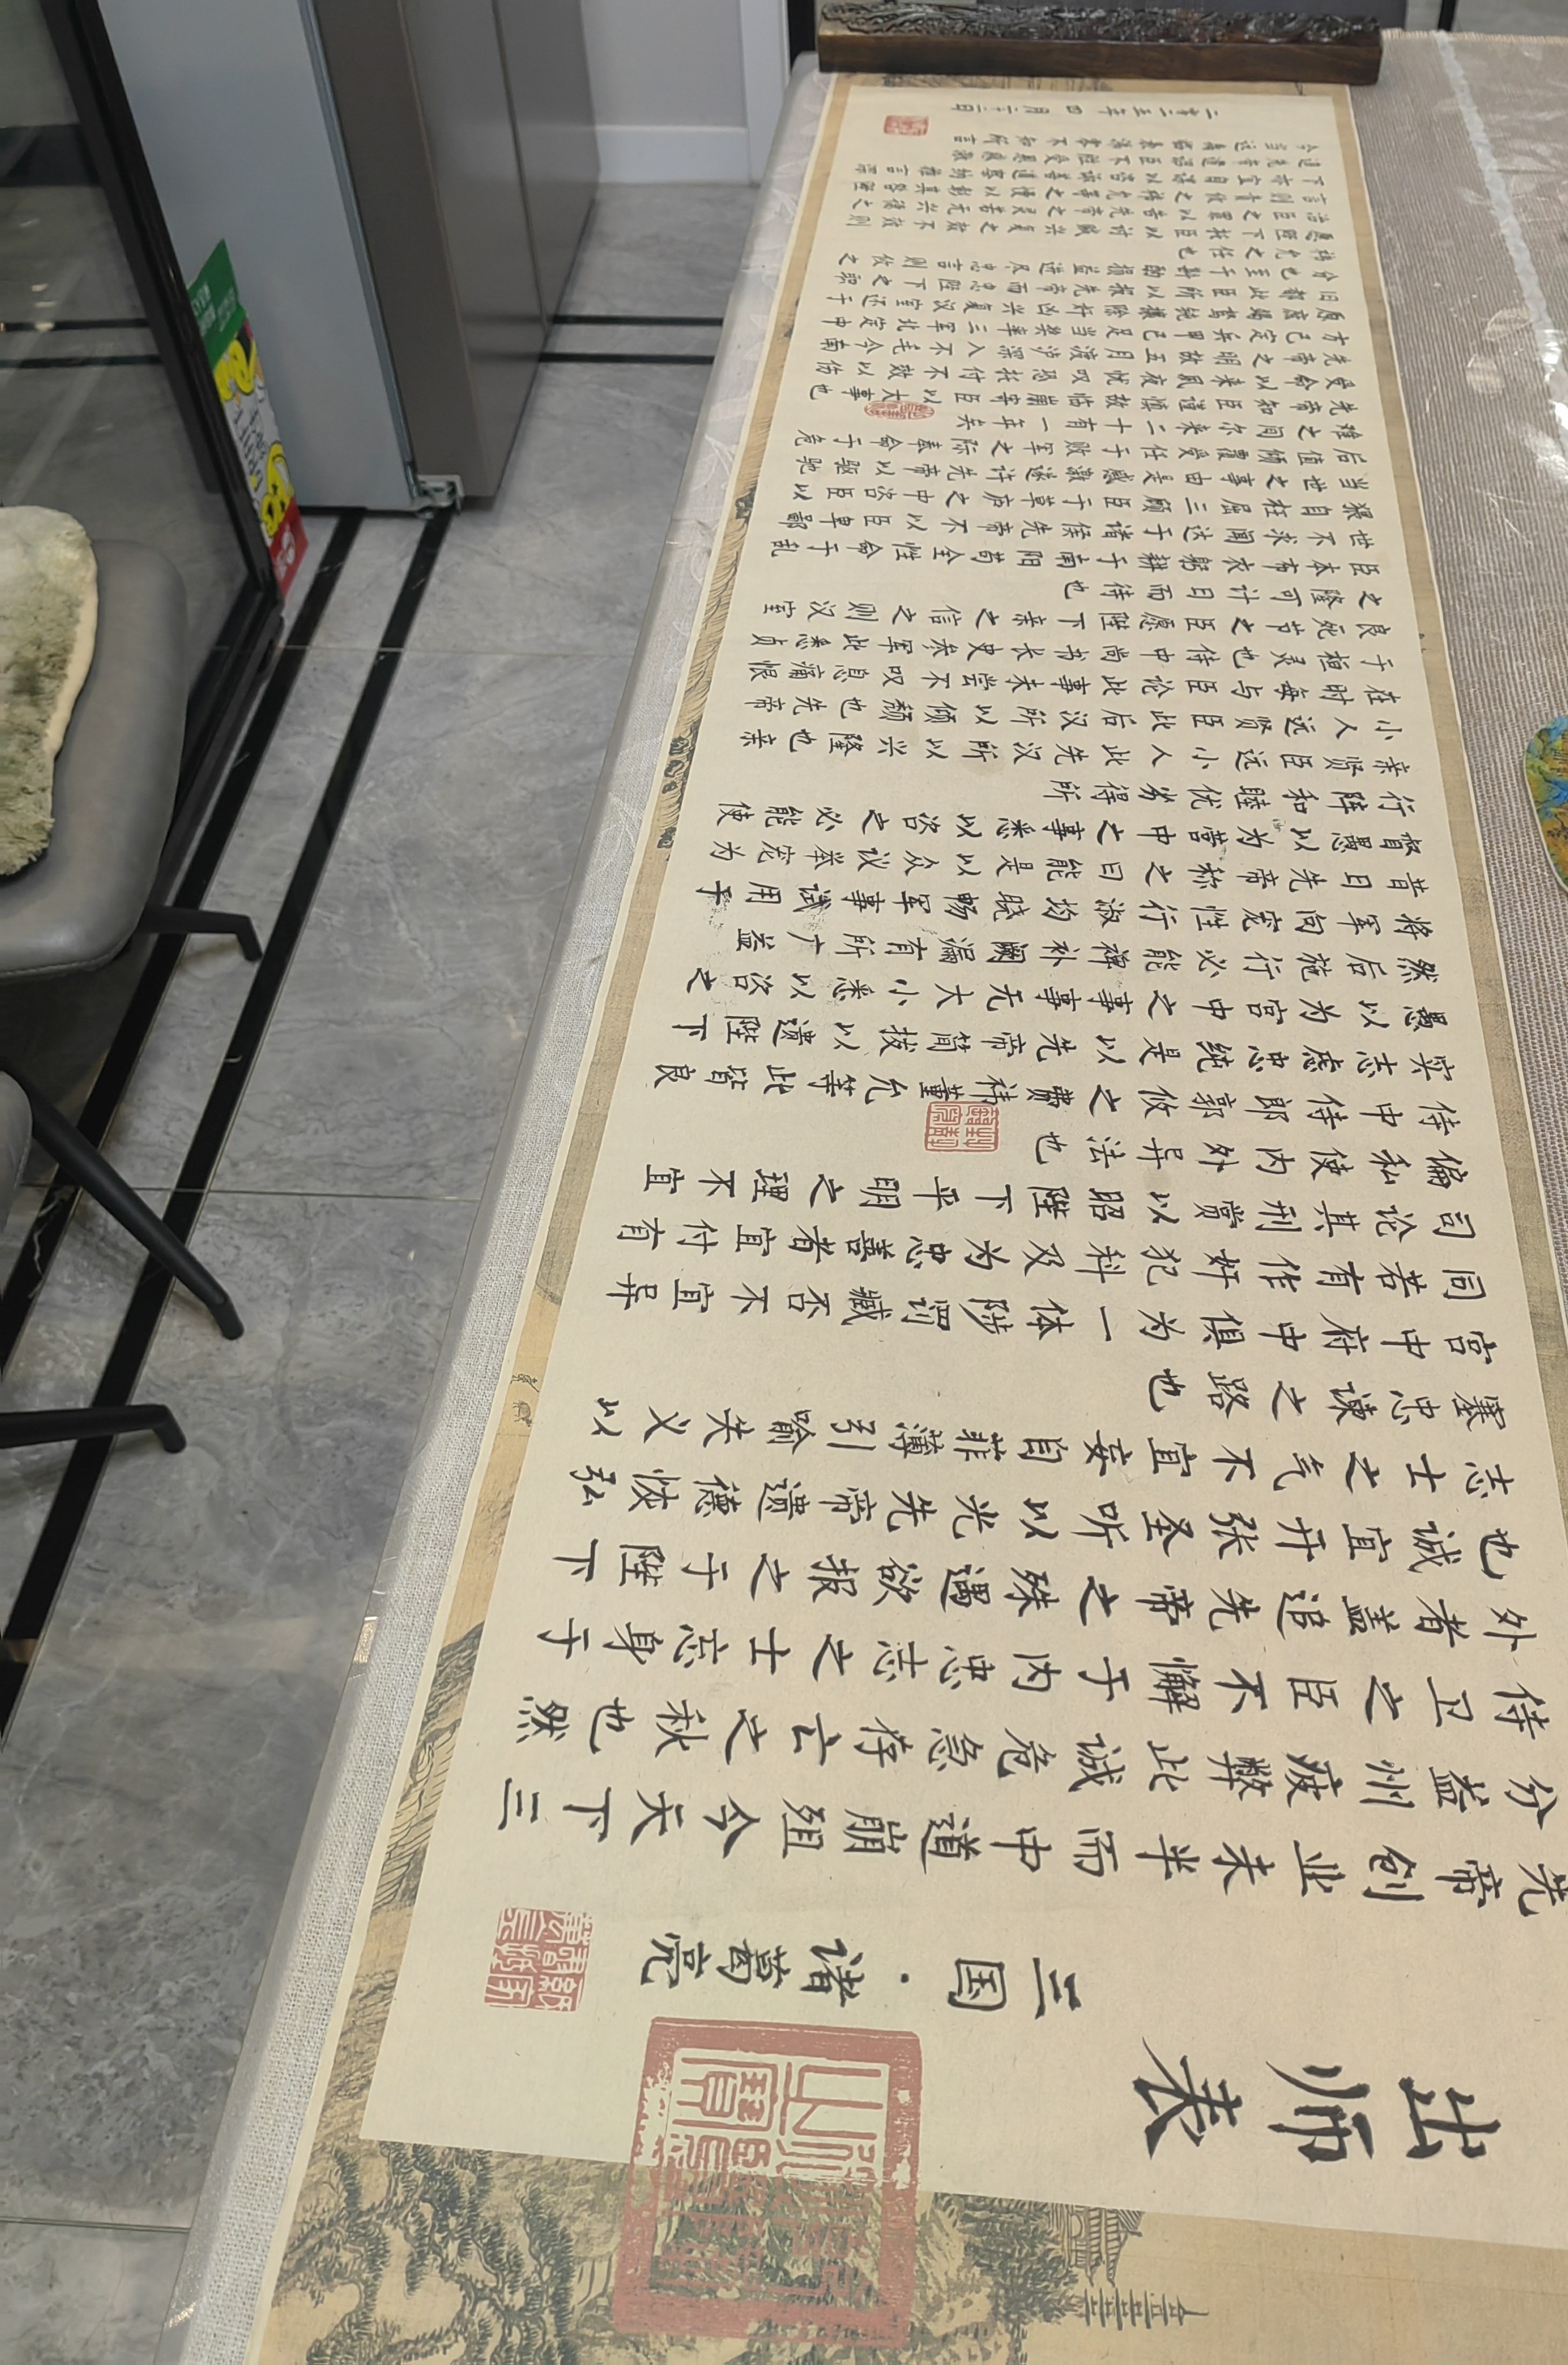 出师表
三国·诸葛亮
先帝创业未半而中道崩殂今天下三
分益州疲弊此诚危急存亡之秋也然
侍卫之臣不懈于内忠志之士忘身于
外者盖追先帝之殊遇欲报之于陛下
也诚宜开张圣听以光先帝遗德恢弘
志士之气不宜妄自菲薄引喻失义以
塞忠谏之路也
宫中府中俱为一体陟罚臧否不宜异
同若有作奸犯科及为忠善者宜付有
司论其刑赏以昭陛下平明之理不宜
偏私使内外异法也
侍中侍郎郭攸之费祎董允等此皆良
实志虑忠纯是以先帝简拔以遗陛下
愚以为宫中之事事无大小悉以咨之
然后施行必能裨补阙漏有所广益
将军向宠性行淑均晓畅军事试用于
昔日先帝称之曰能是以众议举宠为
督愚以为营中之事悉以咨之必能使
行阵和睦优劣得所
亲贤臣远小人此先汉所以兴隆也亲
小人远贤臣此后汉所以倾颓也先帝
在时每与臣论此事未尝不叹息痛恨
于桓灵也侍中尚书长史参军此悉贞
良死节之臣愿陛下亲之信之则汉室
之隆可计日而待也
臣本布衣躬耕于南阳苟全性命于乱
世不求闻达于诸侯先帝不以臣卑鄙
猥自枉屈三顾臣于草庐之中咨臣以
当世之事由是感激遂许先帝以驱驰
后值倾覆受任于败军之际奉命于危
难之间尔来二十有一年矣
先帝知臣谨慎故临崩寄臣以大事也
受命以来夙夜忧叹恐托付不效以伤
先帝之明故五月渡泸深入不毛今南
方已定兵甲已足当奖率三军北定中
原庶竭驽钝攘除奸凶兴复汉室还于
旧都此臣所以报先帝而忠陛下之职
分也至于斟酌损益进尽忠言则攸之
祎允之任也
愿陛下托臣以讨贼兴复之效不效则
治臣之罪以告先帝之灵若无兴德之
言则责攸之祎允等之慢以彰其咎陛
下亦宜自谋以咨诹善道察纳雅言深
追先帝遗诏臣不胜受恩感激
今当远离临表涕零不知所言
二零二五年四月二十二日